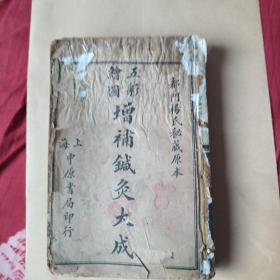 都門楊氏秘藏原本
五彩繪圖
增補鍼灸大成
上海中原書局印行